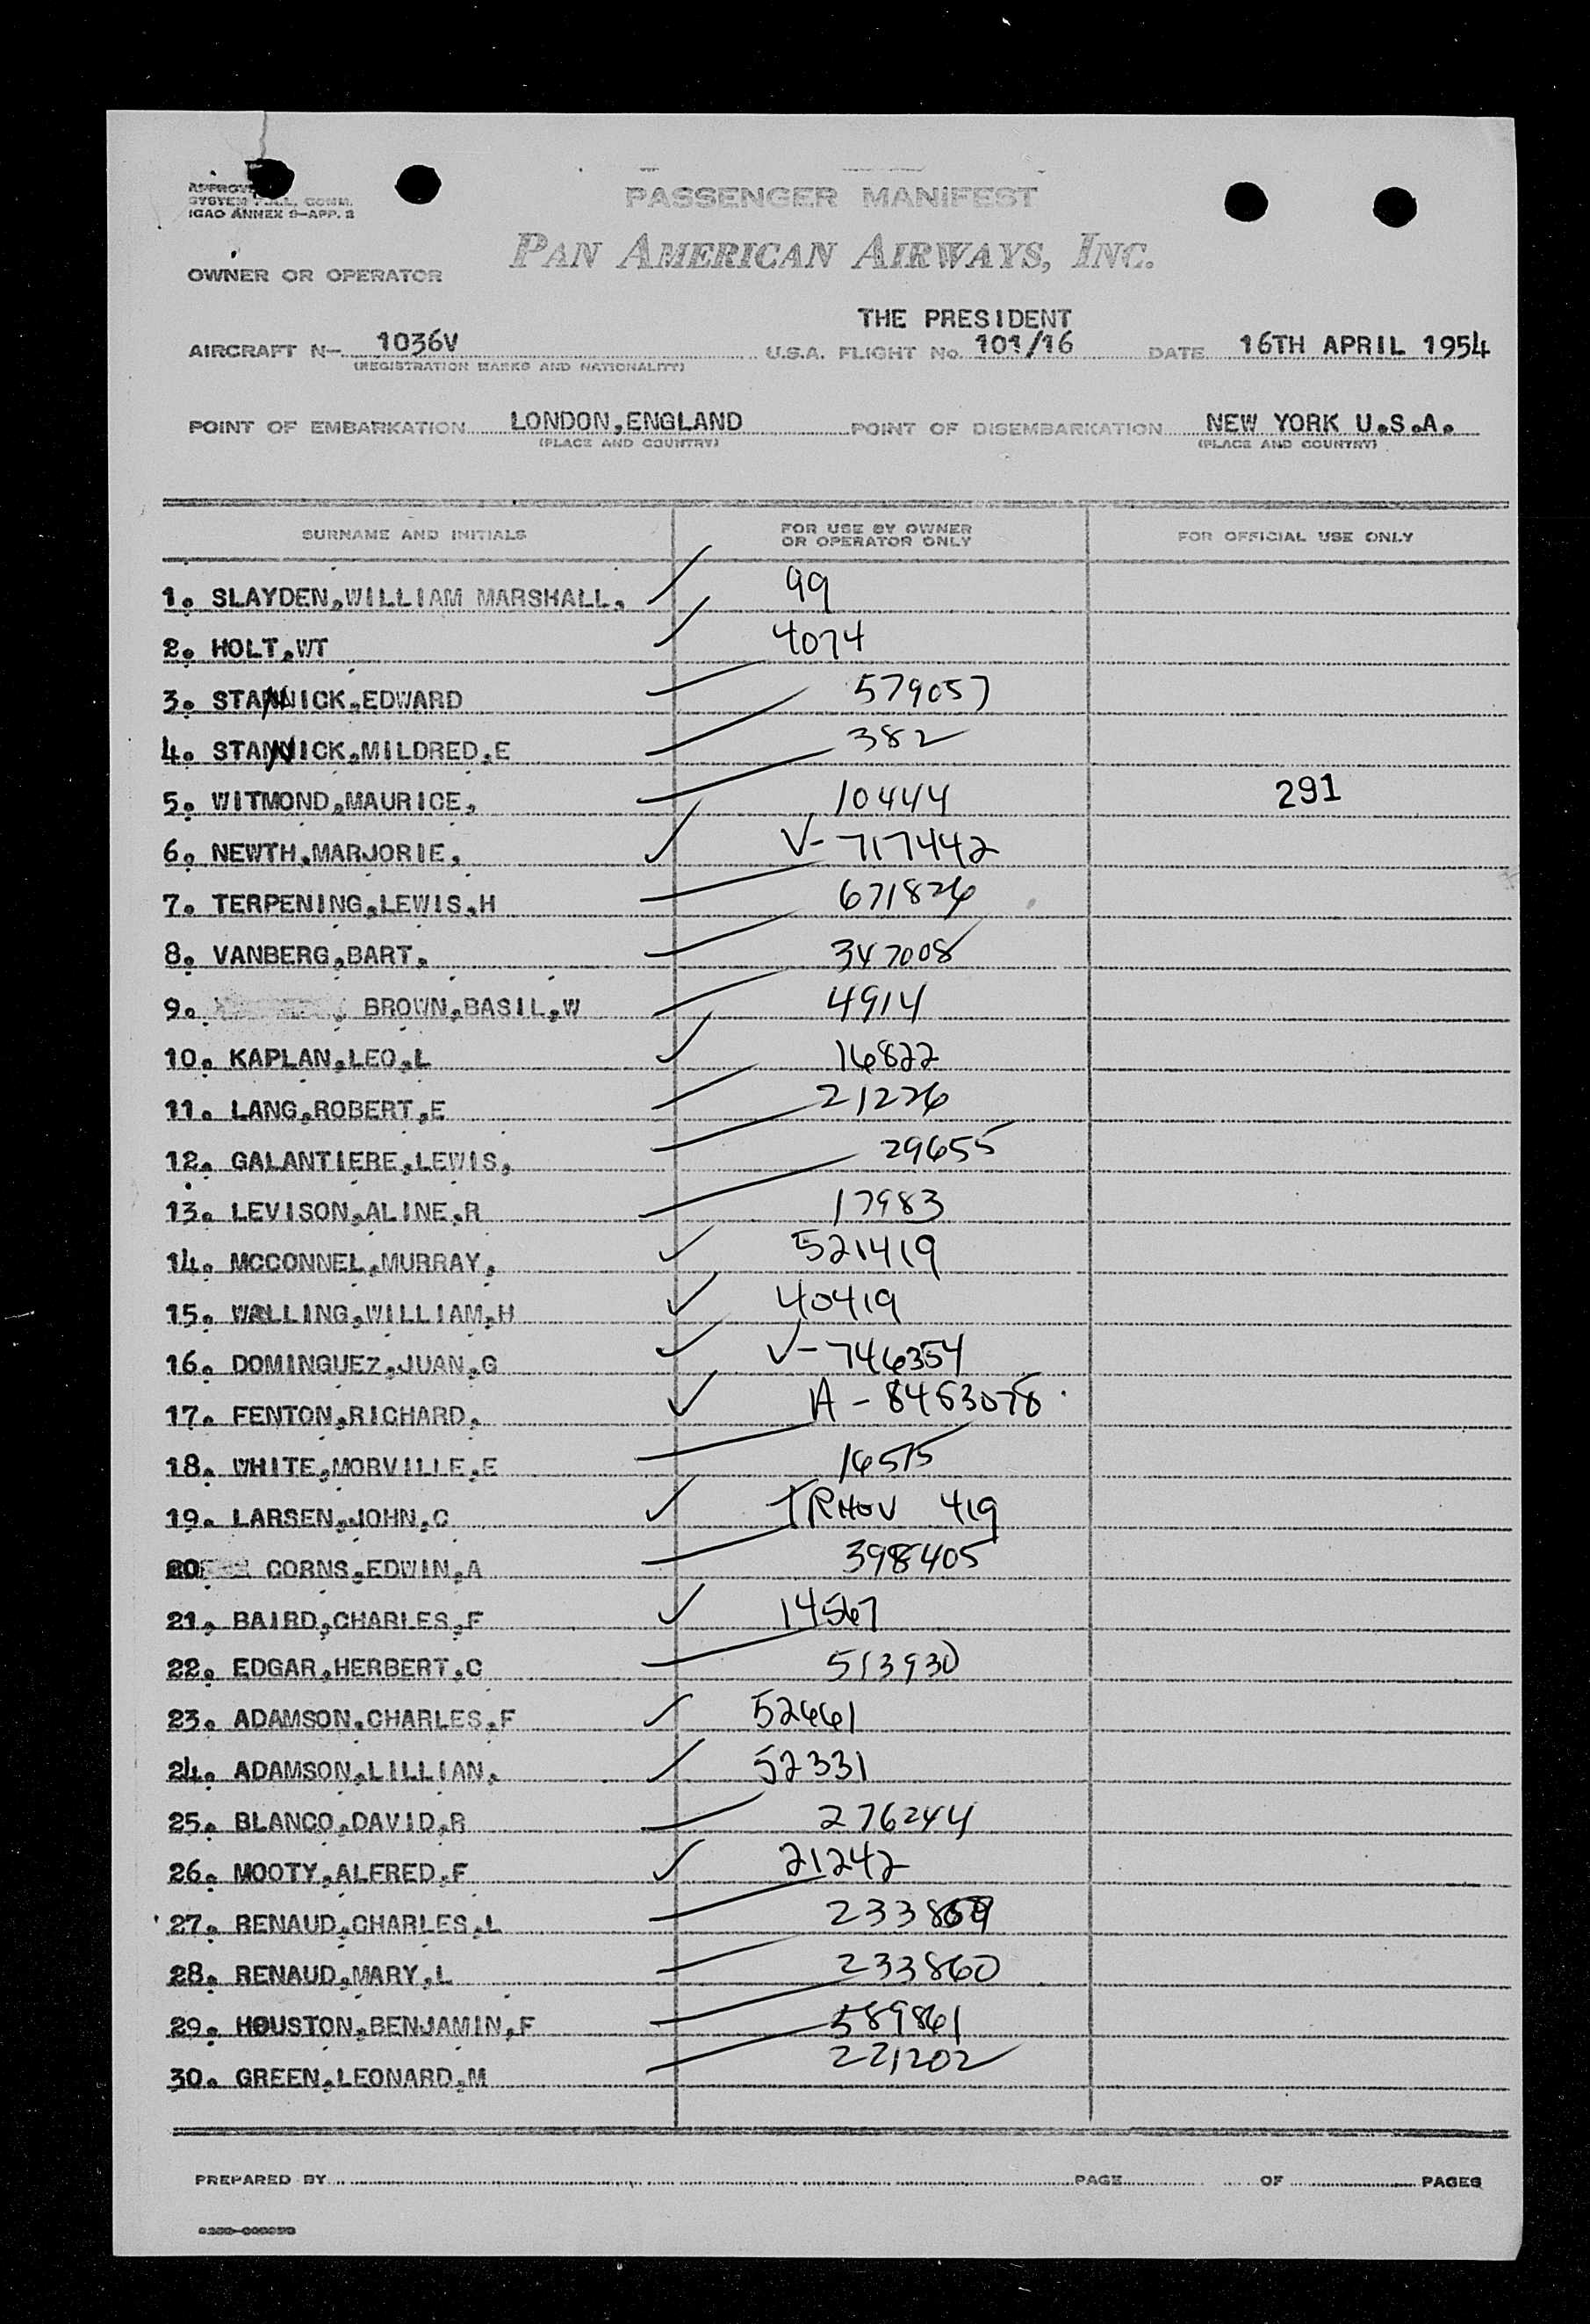 PASSENGER MANIFEST
SYSTEM COMM.
ICAO ANNEX 9-APP. 2
PAN AMERICAN AIRWAYS, INC.
OWNER OR OPERATOR
THE PRESIDENT
AIRCRAFT N- 1036V U.S.A. FLIGHT No. 101/16 DATE 16TH APRIL 1954
(REGISTRATION MARKS AND NATIONALITY)
POINT OF EMBARKATION LONDON,ENGLAND POINT OF DISEMBARKATION NEW YORK U.S.A.
(PLACE AND COUNTRY) (PLACE AND COUNTRY)
SURNAME AND INITIALS FOR USE BY OWNER OR OPERATOR ONLY FOR OFFICIAL USE ONLY
1. SLAYDEN,WILLIAM MARSHALL, 99
2. HOLT,WT 4074
3. STANNICK,EDWARD 579057
4. STANNICK,MILDRED,E 382
5. WITMOND,MAURICE, 10444 291
6. NEWTH,MARJORIE, V-717442
7. TERPENING,LEWIS,H 671826
8. VANBERG,BART, 347008
9. BROWN,BASIL,W 4914
10. KAPLAN,LEO,L 16822
11. LANG,ROBERT,E 21226
12. GALANTIERE,LEWIS, 29655
13. LEVISON,ALINE,R 17983
14. MCCONNEL,MURRAY, 521419
15. WALLING,WILLIAM,H 40419
16. DOMINGUEZ,JUAN,G V-746354
17. FENTON,RICHARD, A-8453078
18. WHITE,MORVILLE,E 16515
19. LARSEN,JOHN,C 419
20 CORNS,EDWIN,A 398405
21. BAIRD,CHARLES,F 14567
22. EDGAR,HERBERT,C 513930
23. ADAMSON,CHARLES,F 52661
24. ADAMSON,LILLIAN, 52331
25. BLANCO,DAVID,R 276244
26. MOOTY,ALFRED,F 21242
27. RENAUD,CHARLES,L 233859
28. RENAUD,MARY,L 233860
29. HOUSTON,BENJAMIN,F 589861
30. GREEN,LEONARD,M 221202
PREPARED BY PAGE OF PAGES